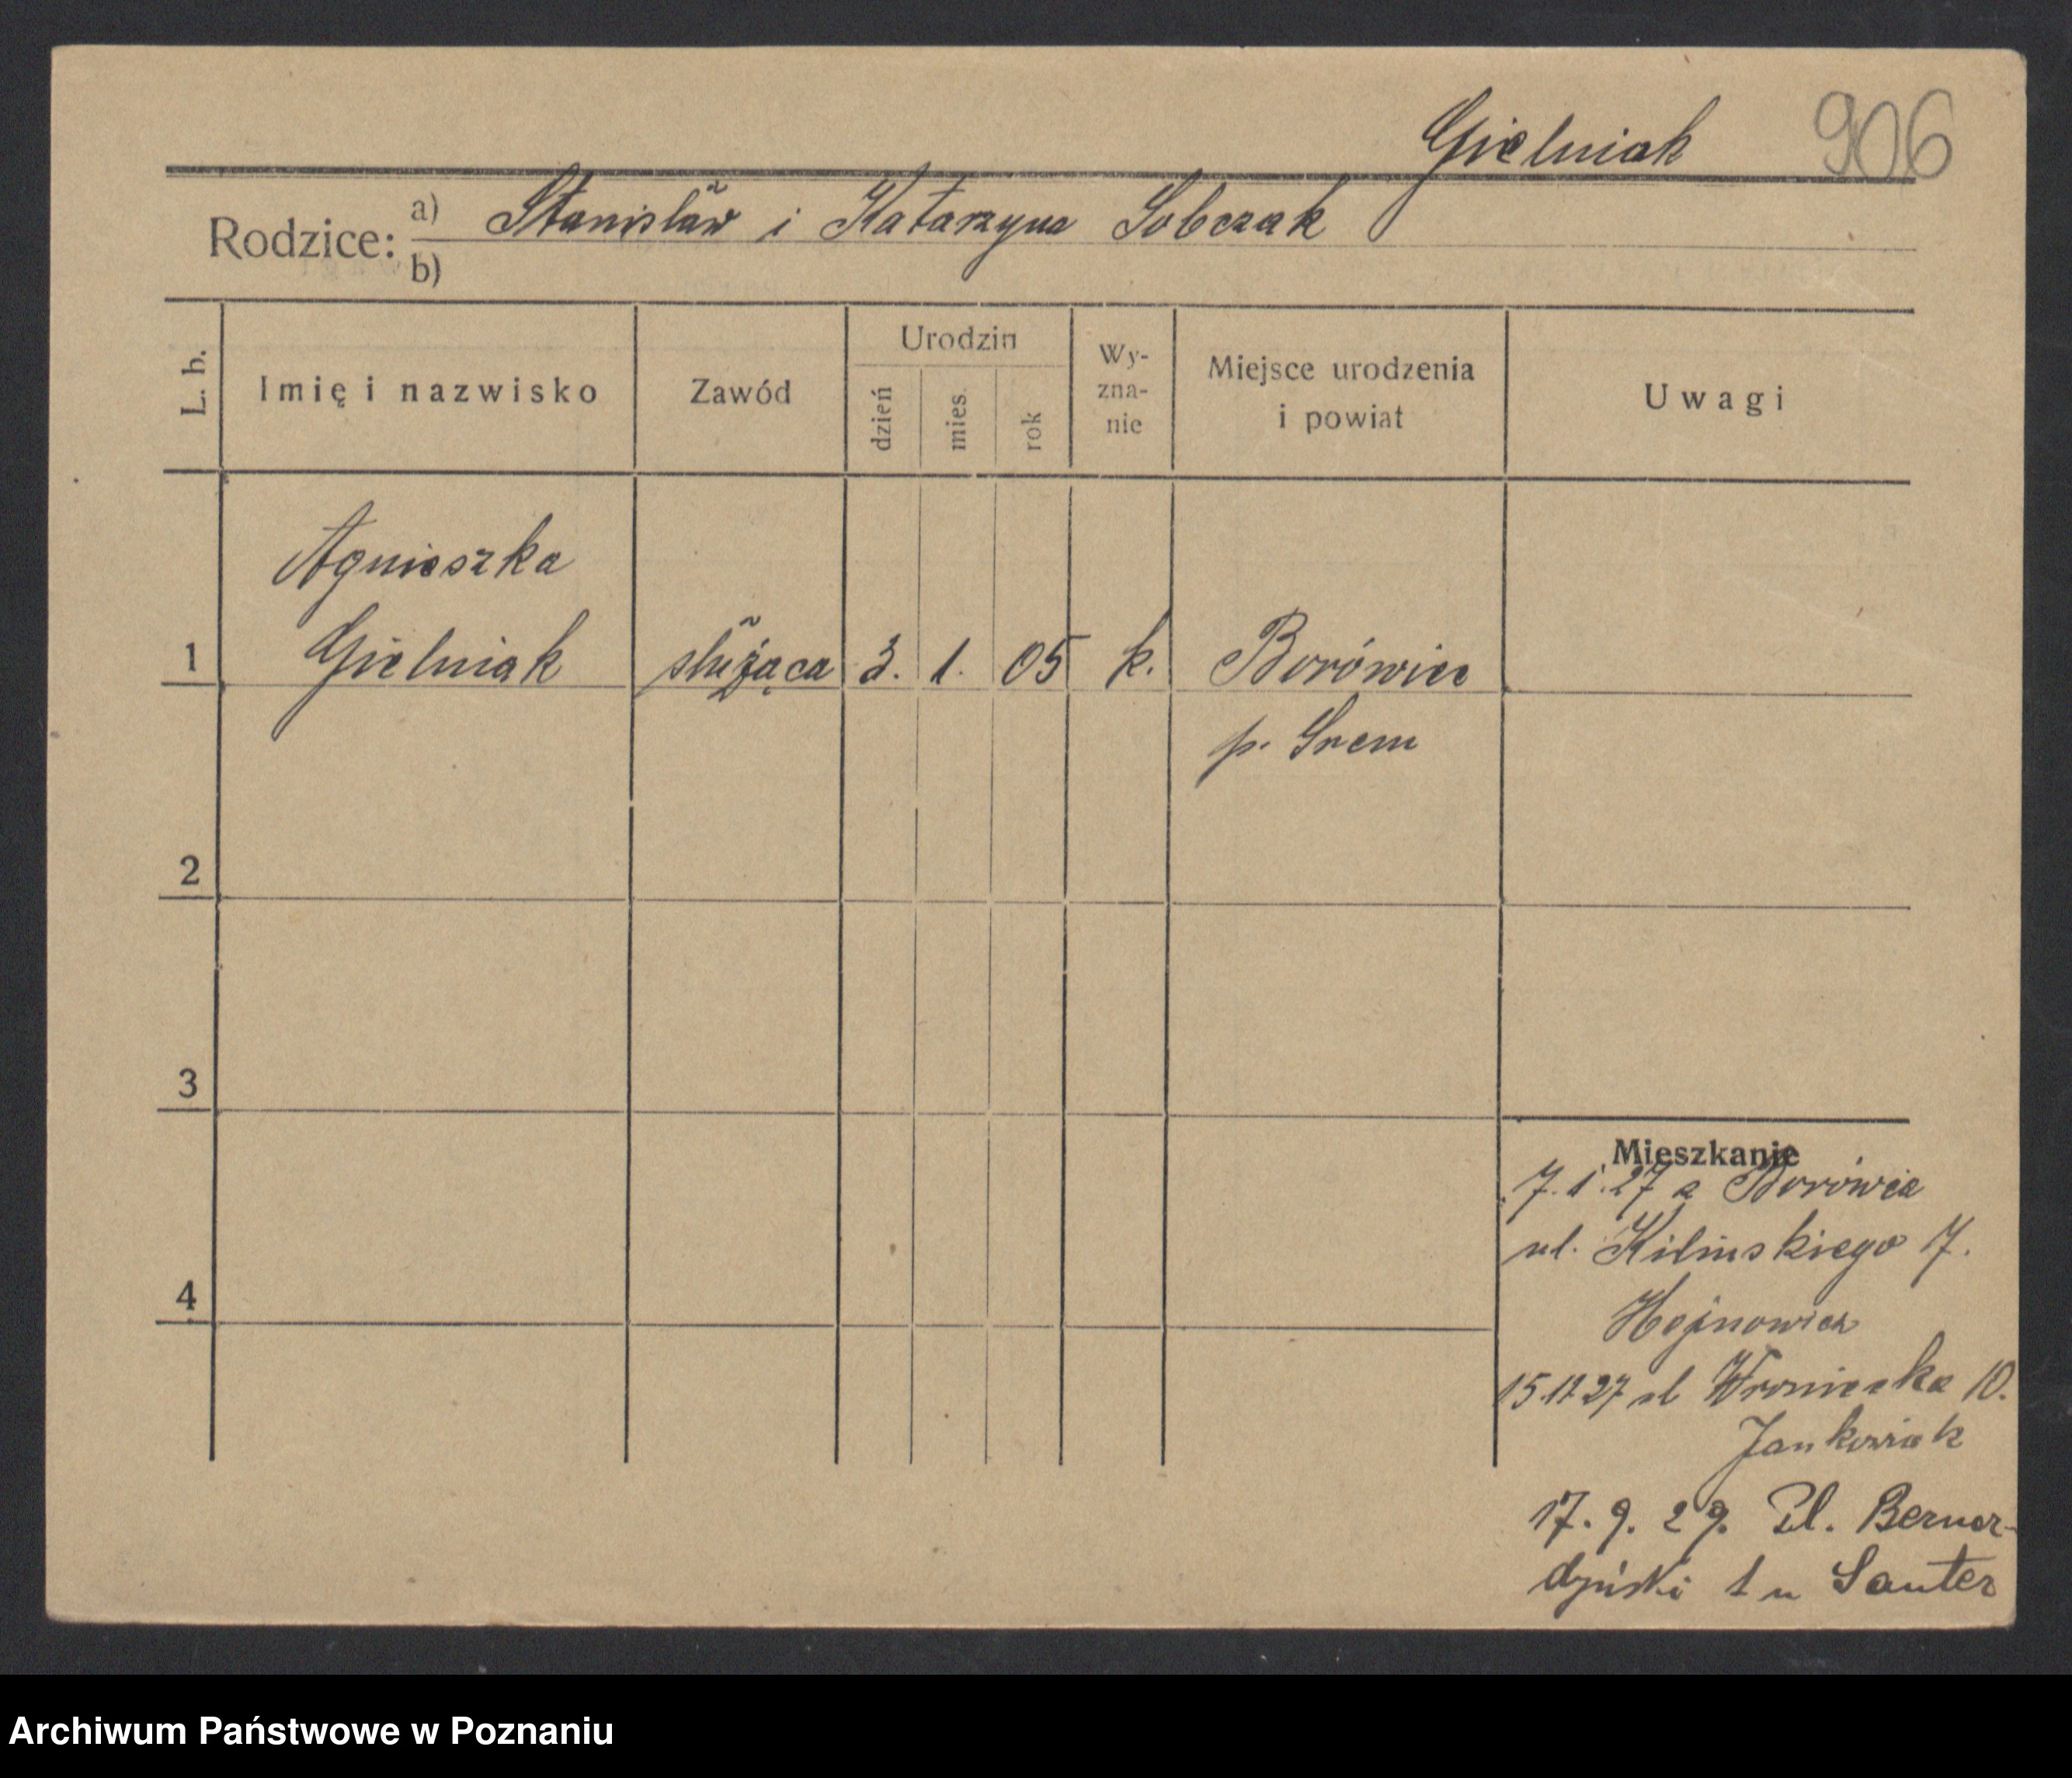 Gielniak 906
Rodzice: a) Stanisław i Katarzyna Sobczak
b)
L. b.
Imię i nazwisko
Zawód
Urodzin
dzień
mies.
rok
Wy-
zna-
nie
Miejsce urodzenia
i powiat
Uwagi
Agnieszka
1 Gielniak służąca 3. 1. 05 k. Borówiec
p. Śrem
2
3
4
Mieszkanie
7.1.27 z Borówca
ul. Kilinskiego 7.
Hojnowicz
15.11.27 ul Wroniecka 10.
Jankowiak
17.9.29. Pl. Bernar-
dyński 1 u Sauter
Archiwum Państwowe w Poznaniu